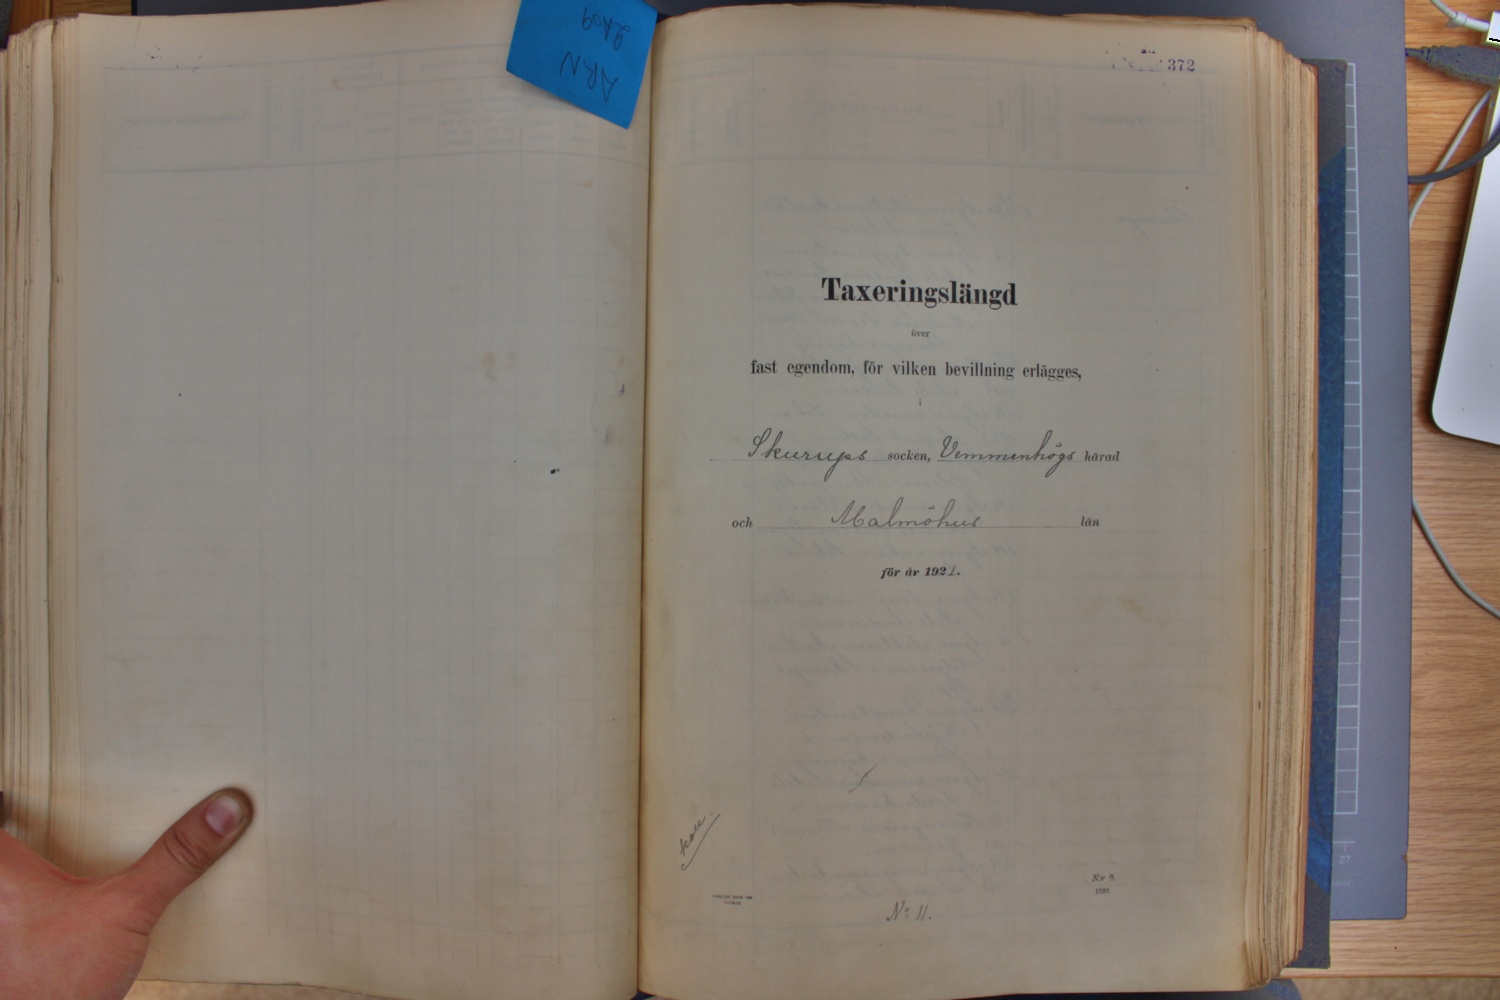 ARN
2109
372
Taxeringslängd
över
fast egendom, för vilken bevillning erlägges,
i
Skurups socken, Vemmenhögs härad
och Malmöhus län
för år 1921.
N:r 9.
1920
No 11.
27